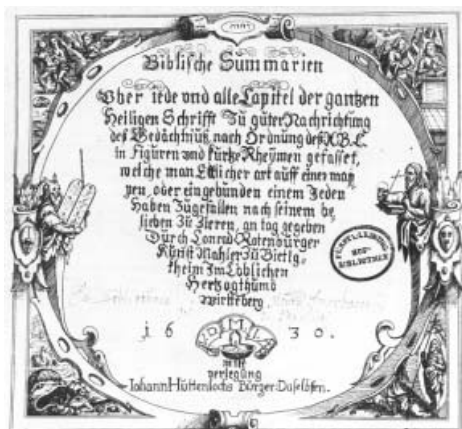 Biblische Summarien
Vber iede vnd alle Capitel der gantzen
Heiligen Schrifft Zu guter Nachrichtung
des Gedächtnüß nach Ordnung deß A.B.C.
in Figuren und kurtze Rheymen gefasset,
welche man Etlicher art auff eine map
pen, oder eingebunden einem Jeden
haben Zugefallen nach seinem be
lieben Zu Zieren, an tag gegeben
Durch Conrad Rotenburger
Kunst Mahler Zu Bietig
theim Im Loblichen
Hertzogthumb
Wirtteberg.
1 6 3 0.
mitt
verlegung
Johann Hüttenlochs Bürger Daselbsten.